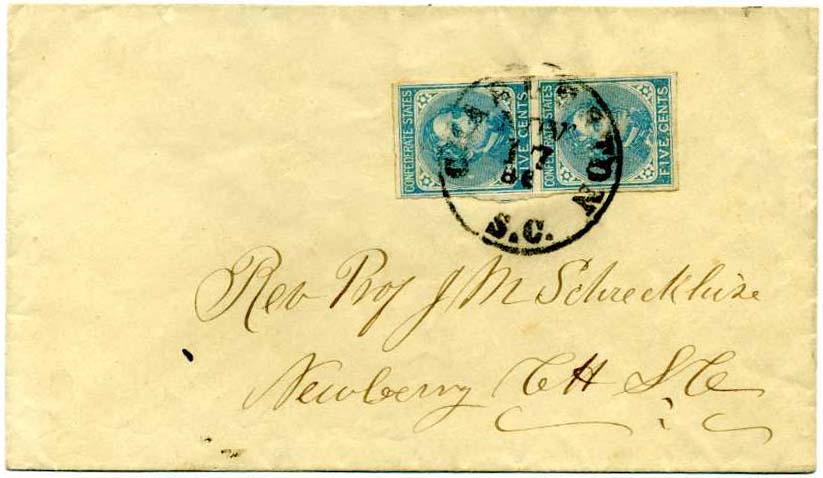 CONFEDERATE STATES
FIVE CENTS
CONFEDERATE STATES
FIVE CENTS
CHARLESTON
17
S.C.
Rev Prof J M Schreckhise
Newberry C H S. C